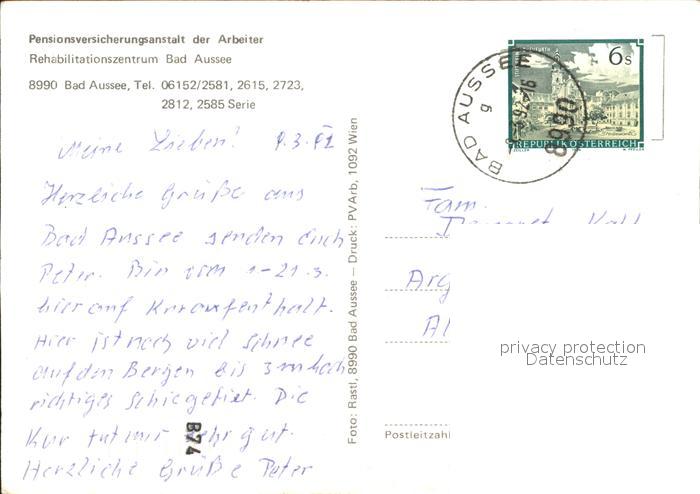 Pensionsversicherungsanstalt der Arbeiter
Rehabilitationszentrum Bad Aussee
8990 Bad Aussee, Tel. 06152/2581, 2615, 2723,
2812, 2585 Serie
Meine Lieben! 9.3.92
Herzliche Grüße aus
Bad Aussee senden Euch
Peter. Bin vom 1-21.3.
hier auf Kuraufenthalt.
Hier ist noch viel Schnee
auf den Bergen bis 3m hoch
richtiges Schigebiet. Die
Kur tut mir sehr gut.
Herzliche Grüße Peter
B74
Foto: Rastl, 8990 Bad Aussee — Druck: PVArb, 1092 Wien
6s
REPUBLIK ÖSTERREICH
8990 BAD AUSSEE
g
Fam.
Arg
Al
privacy protection
Datenschutz
Postleitzahl